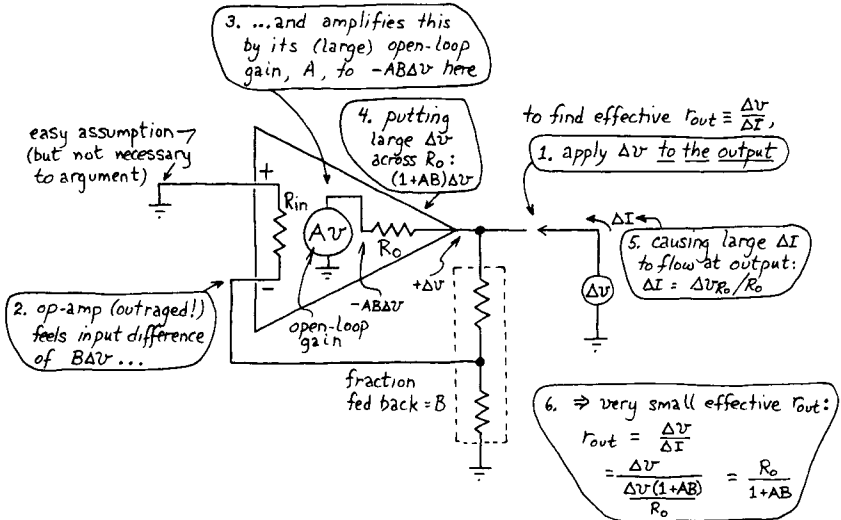 3. ...and amplifies this
by its (large) open-loop
gain, A, to -ABΔv here
4. putting
large Δv
across Ro:
(1+AB)Δv
to find effective rout ≡ Δv/ΔI,
1. apply Δv to the output
easy assumption
(but not necessary
to argument)
+
Rin
Av
Ro
-
-ABΔv
+Δv
open-loop
gain
ΔI
Δv
5. causing large ΔI
to flow at output:
ΔI = ΔvRo/Ro
2. op-amp (outraged!)
feels input difference
of BΔv ...
fraction
fed back = B
6. ⇒ very small effective rout:
rout = Δv/ΔI
= Δv/(Δv(1+AB)/Ro) = Ro/(1+AB)